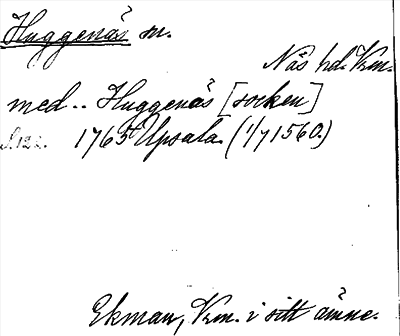 Huggenäs sn.
Näs hd. Vrm.
med .. Huggenäs [socken]
S. 122. 1765 Upsala. (1/7 1560.)
Ekman, Vrm. i sitt ämne.